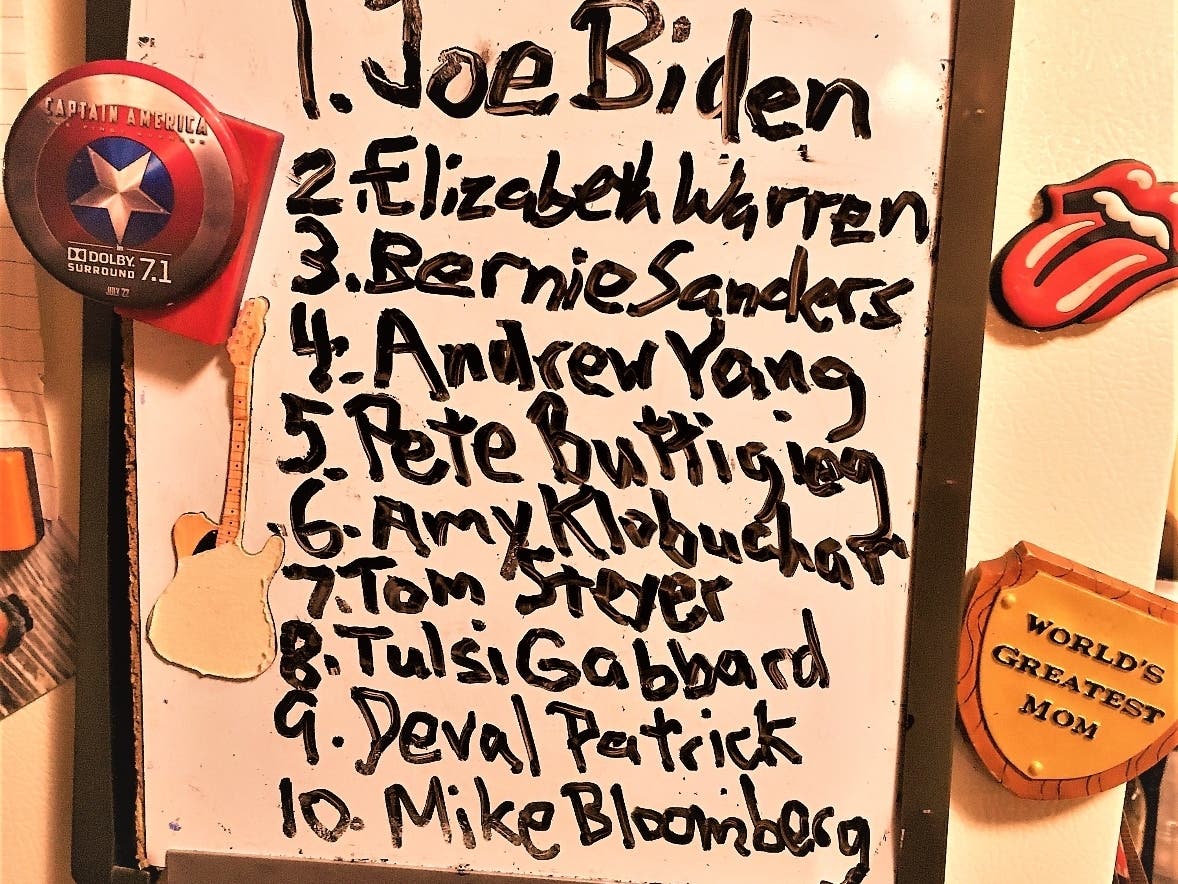 1. Joe Biden
2. Elizabeth Warren
3. Bernie Sanders
4. Andrew Yang
5. Pete Buttigieg
6. Amy Klobuchar
7. Tom Steyer
8. Tulsi Gabbard
9. Deval Patrick
10. Mike Bloomberg
CAPTAIN AMERICA
DOLBY
SURROUND 7.1
JULY 22
WORLD'S
GREATEST
MOM